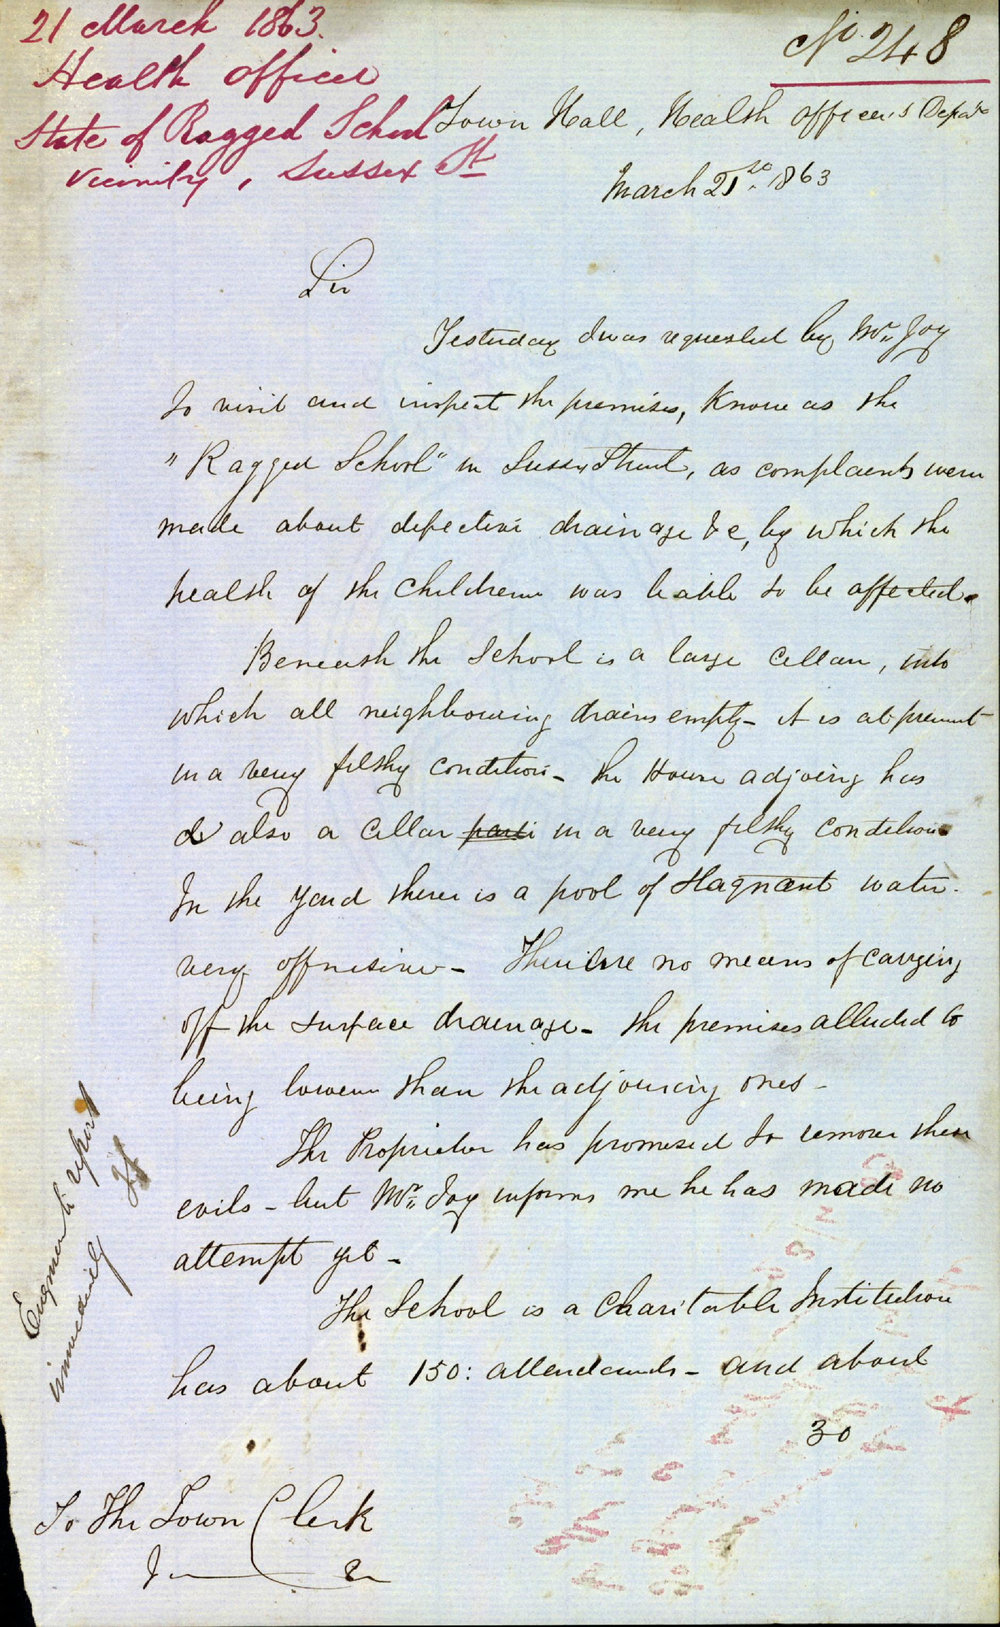 21 March 1863.
Health Officer
State of Ragged School
Vicinity, Sussex St
No 248
Town Hall, Health Officer's Depat
March 21st 1863
Sir
Yesterday I was requested by Mr. Joy
to visit and inspect the premises, known as the
"Ragged School" in Sussex Street, as complaints were
made about defective drainage &c, by which the
health of the children was liable to be affected.
Beneath the School is a large cellar, into
which all neighbouring drains empty - it is at present
in a very filthy condition - the House adjoing has
also a cellar in a very filthy condition.
In the yard there is a pool of stagnant water.
very offensive - There are no means of carrying
off the surface drainage - the premises alluded to
being lower than the adjoining ones -
The Proprietor has promised to remove these
evils - but Mr. Joy informs me he has made no
attempt yet -
The School is a Charitable Institution
has about 150: attendants - and about
30
To The Town Clerk
report
immediately